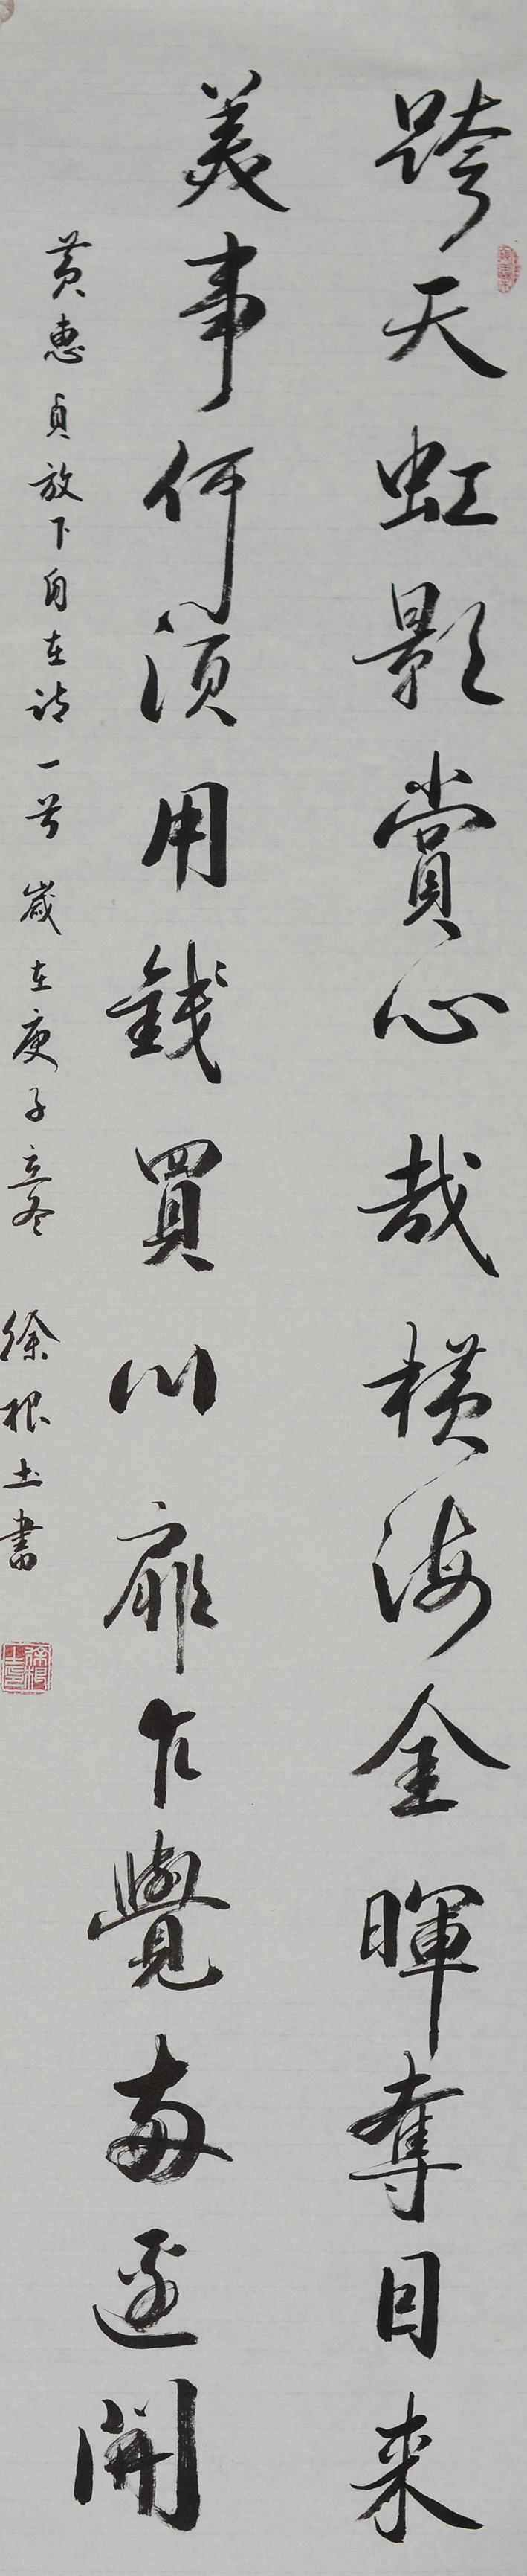 跨天虹影賞心哉橫海金暉奪目来
美事何須用錢買心扉乍覺两邊開
黄惠貞放下自在詩一首 歲在庚子立冬 徐根土書
徐根土印